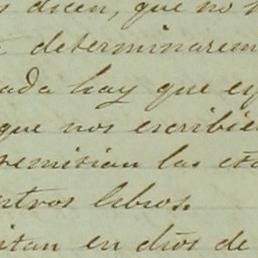 s dicen, que no s
determinarem
ada hay que es
que nos escribie
remitian las eta
ntros libros.
itan en dhos de